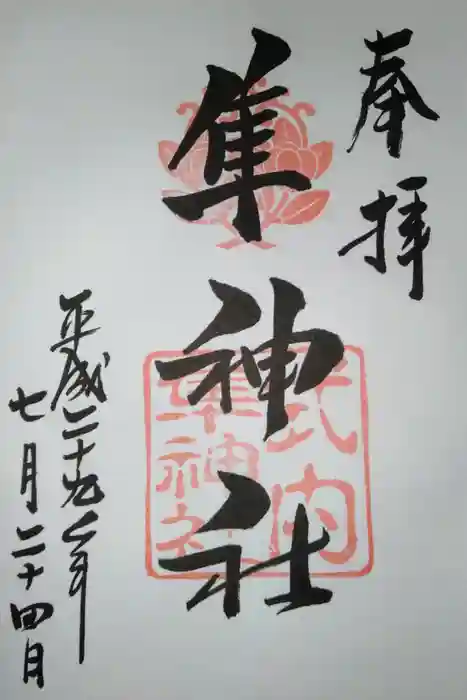 奉拝
隼神社
式内
隼神社
平成二十九年
七月二十四日